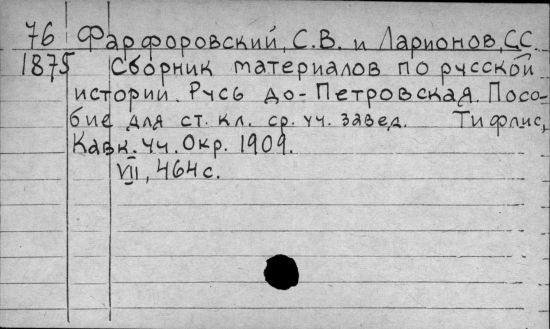 76 Фарфоровский, С.В. и Ларионов, С.С.
1875 Сборник материалов по русской
истории. Русь до-Петровская. Посо-
бие для ст. кл. ср. уч. завед. Тифлис,
Кавк. уч. Окр. 1909.
VII, 464 с.